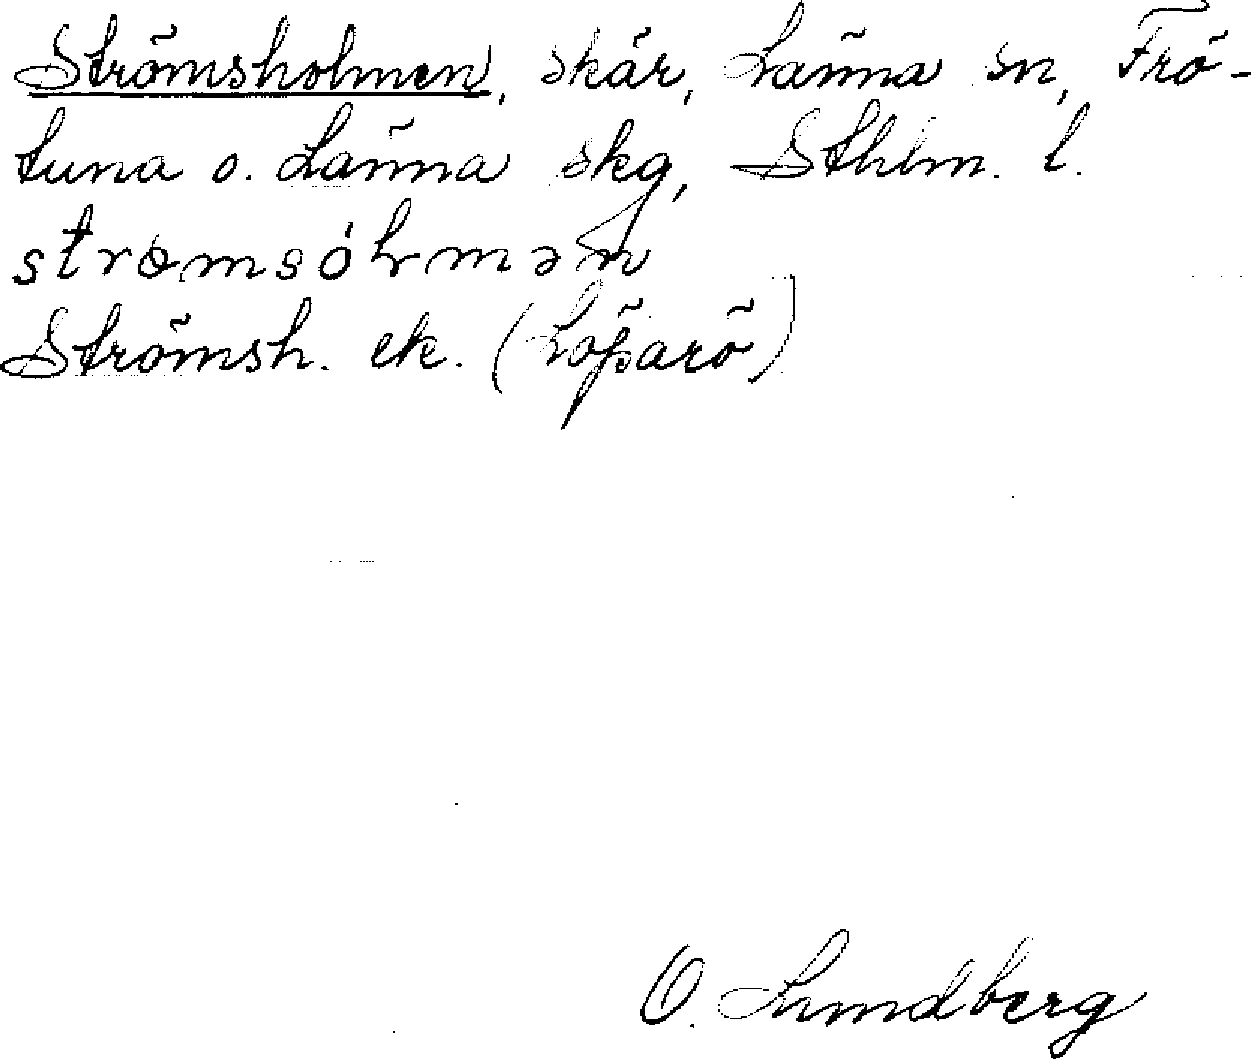 Strömsholmen, skär, Länna sn, Frö-
tuna o. Länna skg, Sthlm. l.
Strömsh. ek. (Löparö)
O. Lundberg